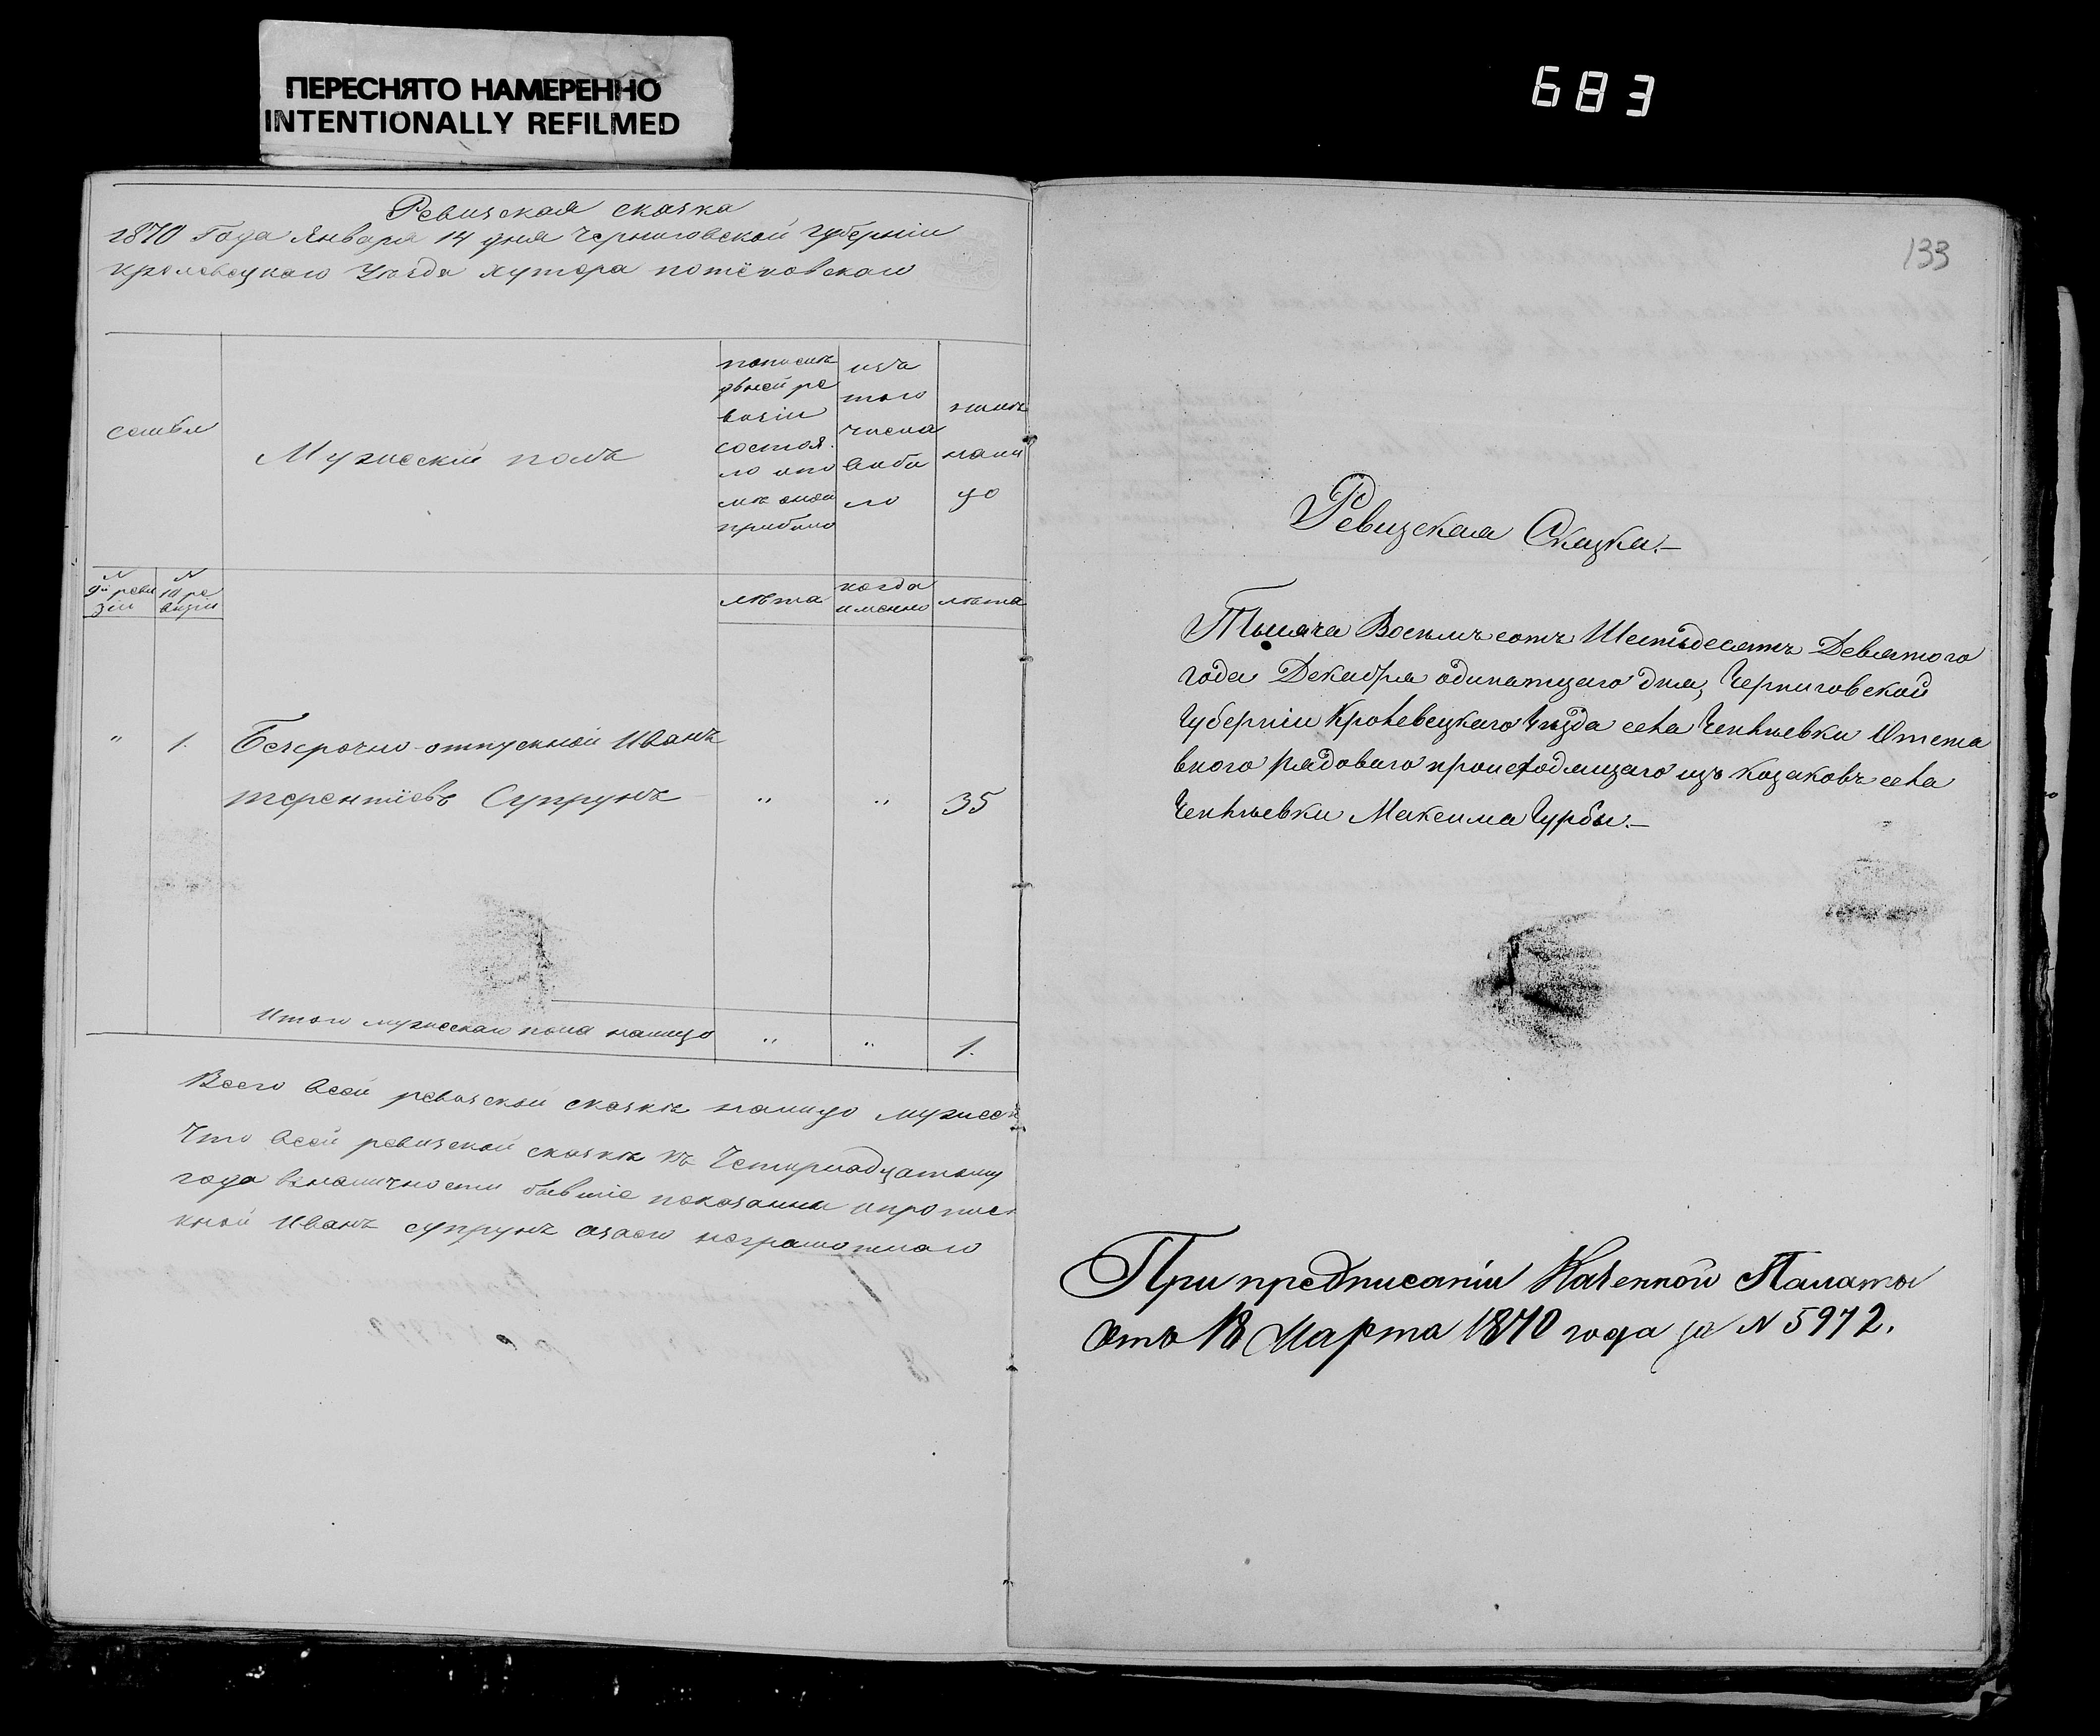 ПЕРЕСНЯТО НАМЕРЕННО
INTENTIONALLY REFILMED
683
Ревизская сказка
1870 Года Января 14 дня Черниговской Губерніи
Кролевецкаго Уѣзда хутора
семьи
Мужеский полъ
ревизіи
состоя
ло
прибыло
изъ
того
числа
выбы
ло
нынѣ
нали
цо
N
9й реви
зіи
N
10 ре
визіи
лѣта
когда
именно
лѣта
" 1. Безсрочно-отпускной Иванъ
терентіевъ Супрунъ " " 35
Итого мужескаго пола налицо " " 1.
Всего всей ревизской сказкѣ налицо мужеск
Что всей ревизской сказкѣ къ Четырнадцатому
года бывшіе показанны
Иванъ супрунъ неграмотнаго
133
Ревизская Сказка.—
Тысяча Восѣмъ сотъ Шестьдесятъ Девятого
года Декабря одинатцаго дня, Черниговской
Губерніи Кролевецкаго Уѣзда села Чепліевки Отста
вного рядоваго происходящаго изъ козаковъ села
Чепліевки Максима Гурбы.—
При предписаніи Казенной Палаты
отъ 18 Марта 1870 года за N 5972.